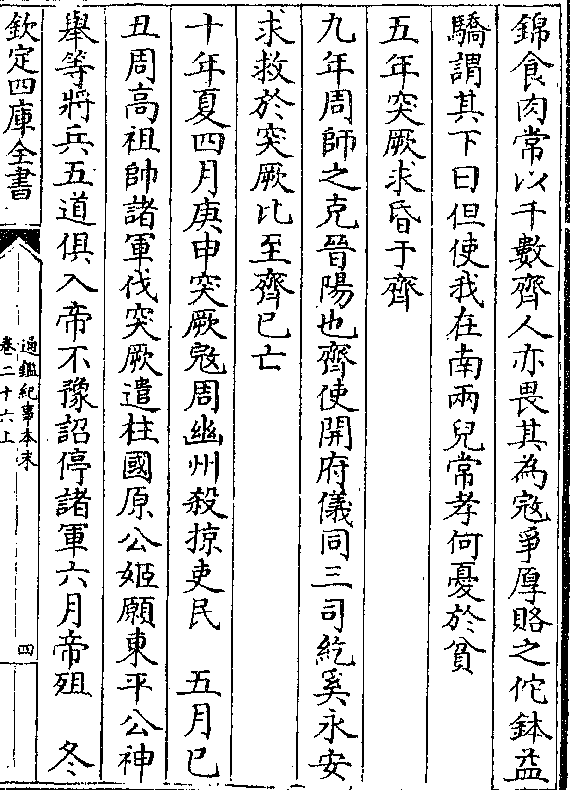 錦食肉常以千數齊人亦畏其為寇爭厚賂之佗鉢益
驕謂其下曰但使我在南兩兒常孝何憂於貧
五年突厥求昏于齊
九年周師之克晉陽也齊使開府儀同三司紇奚永安
求救於突厥比至齊已亡
十年夏四月庚申突厥寇周幽州殺掠吏民　五月己
丑周高祖帥諸軍伐突厥遣柱國原公姬願東平公神
舉等將兵五道俱入帝不豫詔停諸軍六月帝殂　冬
欽定四庫全書
通鑑紀事本末
卷二十六上
四